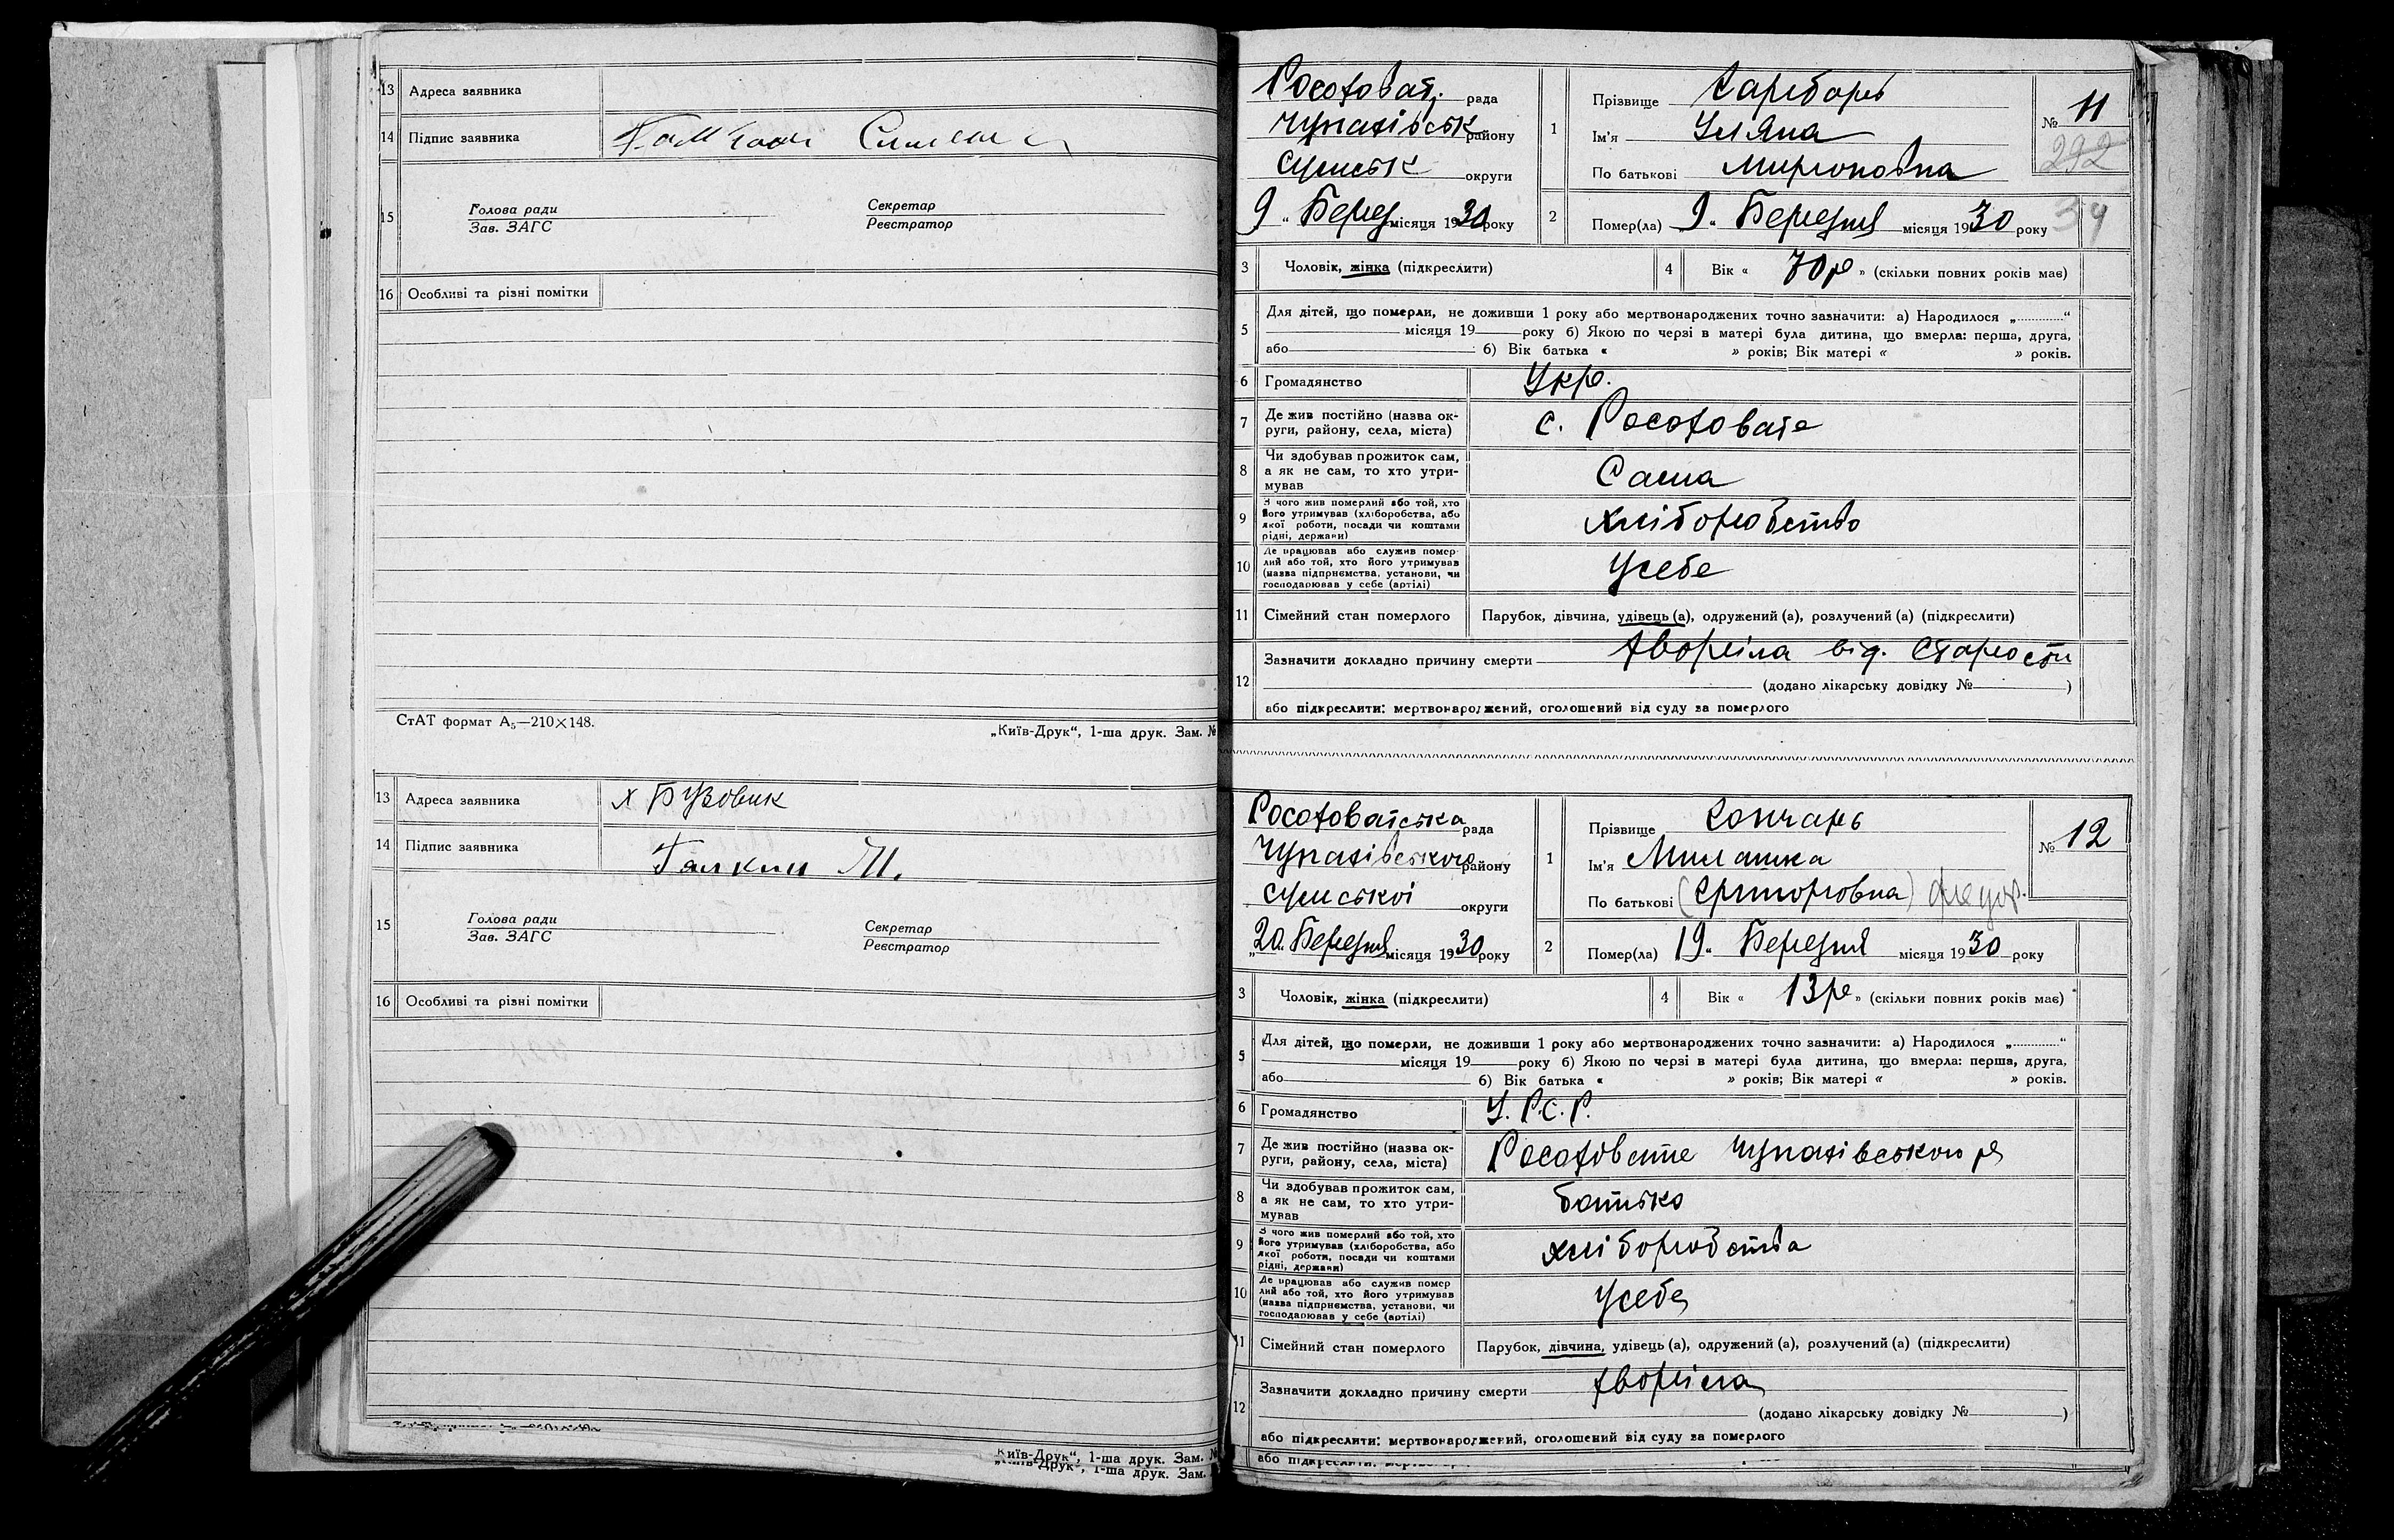 13 Адреса заявника
14 Підпис заявника
15 Голова ради
Зав. ЗАГС
Секретар
Реєстратор
16 Особливі та різні помітки
СтАТ формат А₅—210×148.
„Київ-Друк“, 1-ша друк. Зам. №
13 Адреса заявника х Бузовик
14 Підпис заявника Галкин М.
15 Голова ради
Зав. ЗАГС
Секретар
Реєстратор
16 Особливі та різні помітки
Київ-Друк“, 1-ша друк. Зам. №
„Київ-Друк“, 1-ша друк. Зам.
Росоховат. рада
Чупахівськ району
Сумськ округи
9 „ Берез місяця 1930 року
1 Прізвище
Ім'я Уляна
По батькові Мироновна
№ 11
292
34
2 Помер(ла) 9 „ Березня місяця 1930 року
3 Чоловік, жінка (підкреслити)
4 Вік « 70 р » (скільки повних років має)
5 Для дітей, що померли, не доживши 1 року або мертвонароджених точно зазначити: а) Народилося „............“
місяця 19 року б) Якою по черзі в матері була дитина, що вмерла: перша, друга,
або б) Вік батька « » років; Вік матері « » років.
6 Громадянство Укр.
7 Де жив постійно (назва ок-
руги, району, села, міста) с. Росоховате
8 Чи здобував прожиток сам,
а як не сам, то хто утри-
мував Сама
9 З чого жив померлий або той, хто
його утримував (хліборобства, або
якої роботи, посади чи коштами
рідні, держави) хліборобство
10 Де працював або служив помер-
лий або той, хто його утримував
(назва підприємства, установи, чи
господарював у себе (артілі) Усебе
11 Сімейний стан померлого Парубок, дівчина, удівець (а), одружений (а), розлучений (а) (підкреслити)
12 Зазначити докладно причину смерти хворіла від. старости
(додано лікарську довідку № )
або підкреслити: мертвонароджений, оголошений від суду за померлого
Росоховатська рада
Чупахівського району
Сумської округи
„20„ Березня місяця 1930 року
1 Прізвище Гончарь
Ім'я Милашка
По батькові (Григоровна) Федор.
№ 12
2 Помер(ла) 19 „ Березня місяця 1930 року
3 Чоловік, жінка (підкреслити)
4 Вік « 13 р » (скільки повних років має)
5 Для дітей, що померли, не доживши 1 року або мертвонароджених точно зазначити: а) Народилося „............“
місяця 19 року б) Якою по черзі в матері була дитина, що вмерла: перша, друга,
або б) Вік батька « » років; Вік матері « » років.
6 Громадянство У.Р.С.Р.
7 Де жив постійно (назва ок-
руги, району, села, міста) Росоховате Чупахівського р
8 Чи здобував прожиток сам,
а як не сам, то хто утри-
мував батько
9 З чого жив померлий або той, хто
його утримував (хліборобства, або
якої роботи, посади чи коштами
рідні, держави) хліборобства
10 Де працював або служив помер
лий або той, хто його утримував
(назва підприємства, установи, чи
господарював у себе (артілі) Усебе
11 Сімейний стан померлого Парубок, дівчина, удівець (а), одружений (а), розлучений (а) (підкреслити)
12 Зазначити докладно причину смерти хворіла
(додано лікарську довідку № )
або підкреслити: мертвонароджений, оголошений від суду за померлого